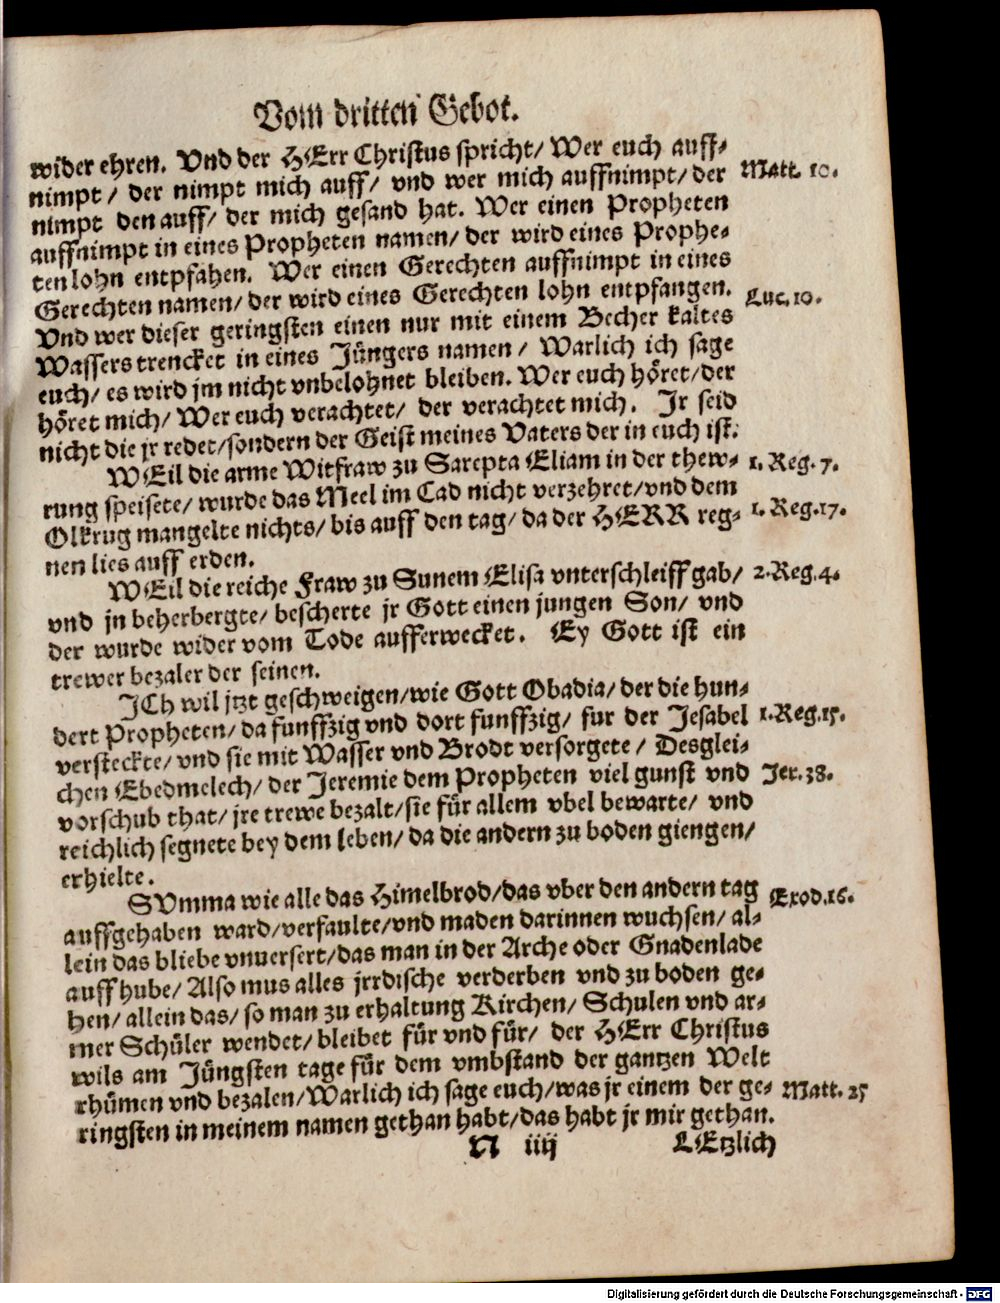 Vom dritten Gebot.
wider ehren. Vnd der HErr Christus spricht/ Wer euch auff-
nimpt/ der nimpt mich auff/ vnd wer mich auffnimpt/ der Matt. 10.
nimpt den auff/ der mich gesand hat. Wer einen Propheten
auffnimpt in eines Propheten namen/ der wird eines Prophe-
ten lohn entpfahen. Wer einen Gerechten auffnimpt in eines
Gerechten namen/ der wird eines Gerechten lohn entpfangen. Luc. 10.
Vnd wer dieser geringsten einen nur mit einem Becher kaltes
Wassers trencket in eines Jüngers namen/ Warlich ich sage
euch/ es wird jm nicht vnbelohnet bleiben. Wer euch höret/ der
höret mich/ Wer euch verachtet/ der verachtet mich. Jr seid
nicht die jr redet/ sondern der Geist meines Vaters der in euch ist.
WEil die arme Witfraw zu Sarepta Eliam in der thew- 1. Reg. 7.
rung speisete/ wurde das Meel im Cad nicht verzehret/ vnd dem
Olkrug mangelte nichts/ bis auff den tag/ da der HERR reg- 1. Reg. 17.
nen lies auff erden.
WEil die reiche Fraw zu Sunem Elisa vnterschleiff gab/ 2. Reg. 4.
vnd jn beherbergte/ bescherte jr Gott einen jungen Son/ vnd
der wurde wider vom Tode aufferwecket. Ey Gott ist ein
trewer bezaler der seinen.
JCh wil jtzt geschweigen/ wie Gott Obadia/ der die hun-
dert Propheten/ da funffzig vnd dort funffzig/ fur der Jesabel 1. Reg. 15.
versteckte/ vnd sie mit Wasser vnd Brodt versorgete/ Desglei-
chen Ebedmelech/ der Jeremie dem Propheten viel gunst vnd Jer. 38.
vorschub that/ jre trewe bezalt/ sie für allem vbel bewarte/ vnd
reichlich segnete bey dem leben/ da die andern zu boden giengen/
erhielte.
SVmma wie alle das Himelbrod/ das vber den andern tag Exod. 16.
auffgehaben ward/ verfaulte/ vnd maden darinnen wuchsen/ al-
lein das bliebe vnuersert/ das man in der Arche oder Gnadenlade
auff hube/ Also mus alles jrrdische verderben vnd zu boden ge-
hen/ allein das/ so man zu erhaltung Kirchen/ Schulen vnd ar-
mer Schüler wendet/ bleibet für vnd für/ der HErr Christus
wils am Jüngsten tage für dem vmbstand der gantzen Welt
rhümen vnd bezalen/ Warlich ich sage euch/ was jr einem der ge- Matt. 25
ringsten in meinem namen gethan habt/ das habt jr mir gethan.
N iiij LEtzlich
Digitalisierung gefördert durch die Deutsche Forschungsgemeinschaft - DFG